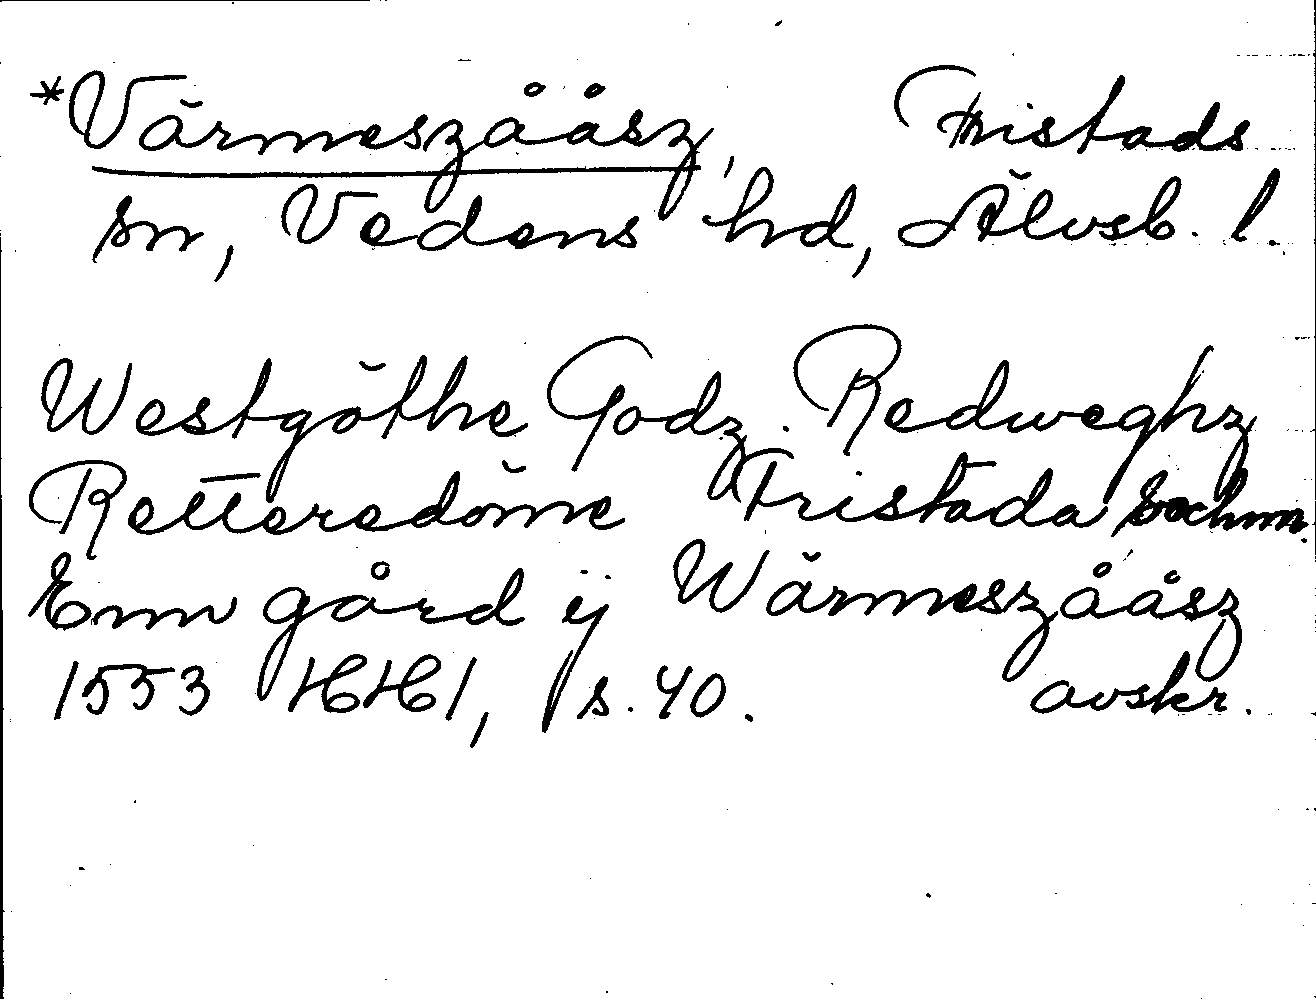 *Värmeszååsz, Fristads
sn, Vedens hd, Älvsb. l.
Westgöthe Godz. Redweghz
Retteredöme Fristada Sochnn.
Enn gård ij Wärmeszååsz
1553 HH1, s. 40. avskr.